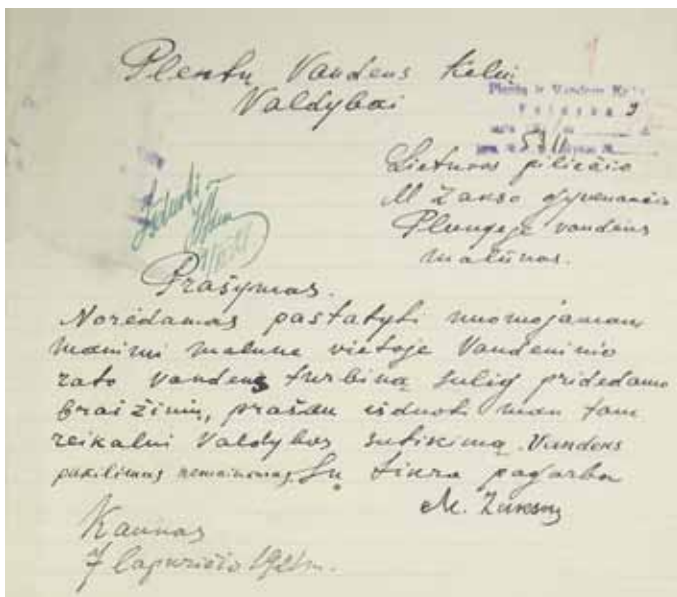 Plentų Vandens Kelių
Valdybai
Plentų ir Vandens Kelių
Valdyba
Lietuvos piliečio
M Zakso gyvenančio
Plungėje vandens
malūnas.
Prašymas.
Norėdamas pastatyti nuomojamam
manimi malune vietoje Vandeninio
rato vandens turbiną sulig pridedamo
braižinių, prašau išduoti man tam
reikalui Valdybos sutikimą. Vandens
pakilimas nemainomas, Su tikra pagarba
M. Zaksas
Kaunas
7 lapkričio